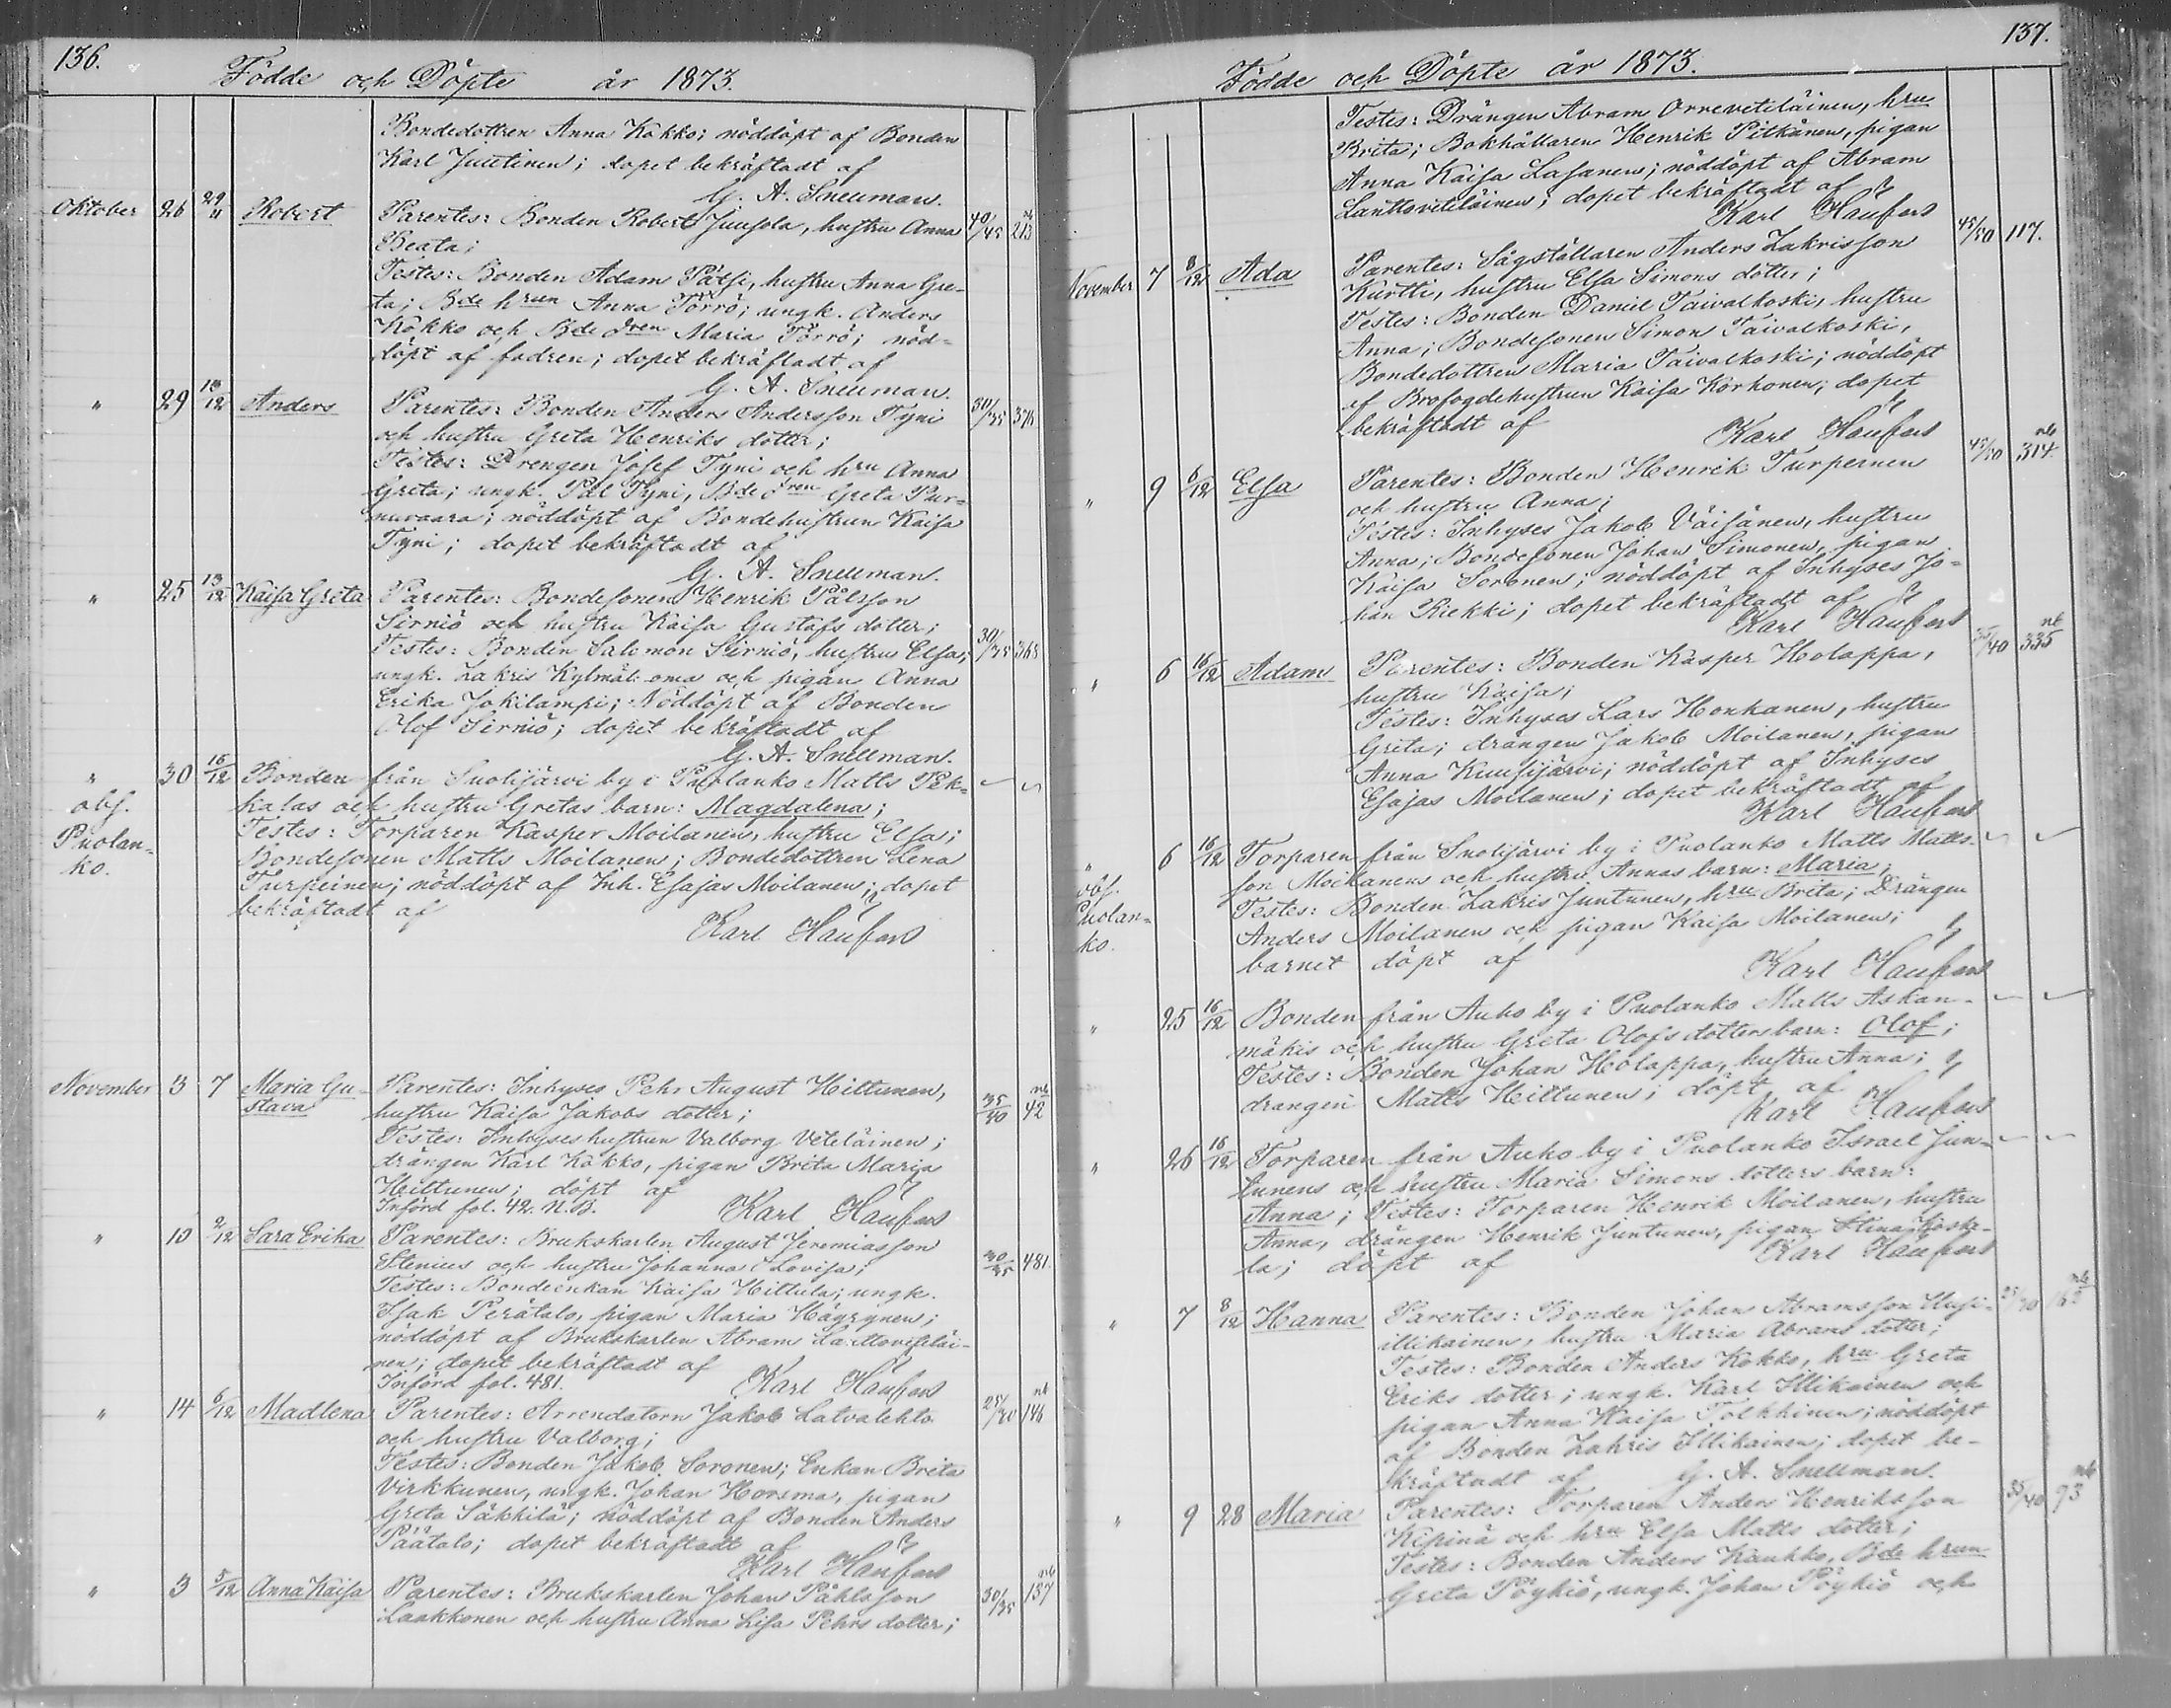 136.
Födde och Döpte år 1873.
Bondedottren Anna Kokko; nöddöpt af Bonden
Karl Juutinen; dopet bekräftadt af
G. A. Snellman.
Oktober 26 29/11 Robert Parentes: Bonden Robert Juusola, hustru Anna 40/45 nb 213
Beata;
Testes: Bonden Adam Pätsi, hustru Anna Gre-
ta; Bde hrun Anna Törrö; ungk. Anders
Kokko och Bde dren Maria Törrö; nöd-
döpt af fadren; dopet bekräftadt af
G. A. Snellman.
" 29 13/12 Anders Parentes: Bonden Anders Andersson Tyni 30/35
och hustru Greta Henriks dotter;
Testes: Drengen Josef Tyni och hru Anna
Greta; ungk. Pål Tyni, Bde dren Greta Pur-
nuvaara; nöddöpt af Bondehustrun Kaisa
Tyni; dopet bekräftadt af
G. A. Snellman.
" 25 13/12 Kaisa Greta Parentes: Bondesonen Henrik Pålsson
Sirniö och hustru Kaisa Gustafs dotter;
Testes: Bonden Salomon Sirniö, hustru Elsa; 30/35 368
ungk. Zakris Kylmäl. oma och pigan Anna
Erika Jokilampi; Nöddöpt af Bonden
Olof Sirniö; dopet bekräftadt af
G. A. Snellman.
" 30 16/12 Bonden från Suolijärvi by i Puolanko Matts Pek-
obs. kalas och hustru Gretas barn: Magdalena;
Puolan- Testes: Torparen Kasper Moilanen, hustru Elsa;
ko. Bondesonen Matts Moilanen; Bondedottren Lena
Turpeinen; nöddöpt af Inh. Esajas Moilanen; dopet
bekräftadt af
Karl Haufors
November 3 7 Maria Gu- Parentes: Inhyses Pehr August Hiltunen, 35/40 nb 42
stava hustru Kaisa Jakobs dotter;
Testes: Inhyseshustrun Valborg Veteläinen;
drängen Karl Kokko, pigan Brita Maria
Hiltunen; döpt af
Införd fol. 42. N.B. Karl Haufors
" 10 2/12 Sara Erika Parentes: Brukskarlen August Jeremiasson
Stenius och hustru Johanna Lovisa; 30/35 481.
Testes: Bondeenkan Kaisa Hiltula; ungk.
Isak Perätalo, pigan Maria Häyrynen;
nöddöpt af Brukskarlen Abram
nen; dopet bekräftadt af
Införd fol. 481. Karl Haufors
" 14 6/12 Madlena Parentes: Arrendatorn Jakob Latvalehto 25/30 nb 146
och hustru Valborg;
Testes: Bonden Jakob Soronen; Enkan Brita
Virkkunen, ungk. Johan Horsma, pigan
Greta Säkkilä; nöddöpt af Bonden Anders
Päätalo; dopet bekräftadt af
Karl Haufors
" 3 5/12 Anna Kaisa Parentes: Brukskarlen Johan Påhlsson 30/35 nb 187
Laakkonen och hustru Anna Lisa Pehrs dotter;
137.
Födde och Döpte år 1873.
Testes: Drängen Abram Orreveteläinen, hru
Brita; Bokhållaren Henrik Pitkänen, pigan
Anna Kaisa Lasanen; nöddöpt af Abram
Lauttoveteläinen; dopet bekräftadt af
Karl Haufors
November 7 8/12 Ada Parentes: Sågställaren Anders Zakrisson 45/50 117.
Kurtti, hustru Elsa Simons dotter;
Testes: Bonden Daniel Taivalkoski, hustru
Anna; Bondesonen Simon Taivalkoski,
Bondedottren Maria Taivalkoski; nöddöpt
af Brofogdehustrun Kaisa Korhonen; dopet
bekräftadt af
Karl Haufors
" 9 6/12 Elsa Parentes: Bonden Henrik Turpeinen 45/50 nb 314.
och hustru Anna;
Testes: Inhyses Jakob Väisänen, hustru
Anna; Bondesonen Johan Simonen, pigan
Kaisa Soronen; nöddöpt af Inhyses Jo-
han Riekki; dopet bekräftadt af
Karl Haufors
" 6 16/12 Adam Parentes: Bonden Kasper Holappa, 35/40 nb 335
hustru Kaisa;
Testes: Inhyses Lars Honkanen, hustru
Greta; drängen Jakob Moilanen, pigan
Anna Kuusijärvi; nöddöpt af Inhyses
Esajas Moilanen; dopet bekräftadt af
Karl Haufors
" 6 16/12 Torparen från Suolijärvi by i Puolanko Matts Matts-
obs. son Moilanens och hustru Annas barn: Maria;
Puolan- Testes: Bonden Zakris Juntunen, hru Brita; Drängen
ko. Anders Moilanen och pigan Kaisa Moilanen;
barnet döpt af
Karl Haufors
" 25 16/12 Bonden från Auho by i Puolanko Matts Askan-
mäkis och hustru Greta Olofsdotters barn: Olof;
Testes: Bonden Johan Holappa, hustru Anna;
drängen Matts Heittunen; döpt af
Karl Haufors
" 26 16/12 Torparen från Auho by i Puolanko Israel Jun-
tunens och hustru Maria Simons dotters barn:
Anna; Testes: Torparen Henrik Moilanen, hustru
Anna, drängen Henrik Juntunen, pigan Stina Koska-
la; döpt af Karl Haufors
" 7 8/12 Hanna Parentes: Bonden Johan Abramsson Uusi-
illikainen, hustru Maria Abrams dotter;
Testes: Bonden Anders Kokko, hru Greta
Eriks dotter; ungk. Karl Illikainen och
pigan Anna Kaisa Tolkkinen; nöddöpt
af Bonden Zakris Illikainen; dopet be-
kräftadt af G. A. Snellman.
" 9 28 Maria Parentes: Torparen Anders Henriksson 35/40 nb 93
Kipinä och hru Elsa Matts dotter;
Testes: Bonden Anders Kaukko, Bde hrun
Greta Pöykiö, ungk. Johan Pöykiö och